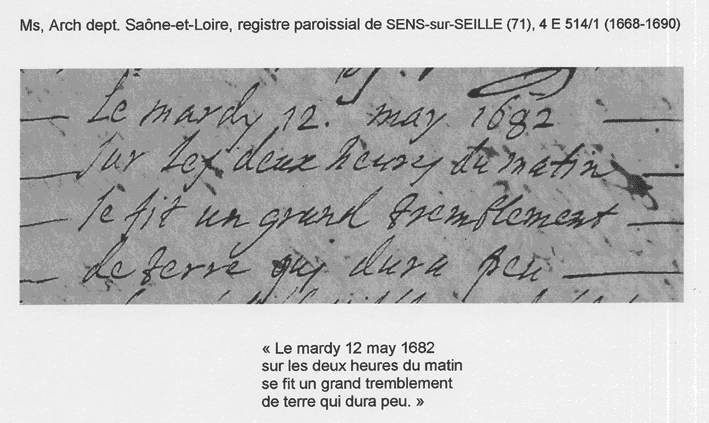 Ms, Arch dept. Saône-et-Loire, registre paroissial de SENS-sur-SEILLE (71), 4 E 514/1 (1668-1690)
Le mardy 12. may 1682
sur les deux heures du matin
se fit un grand tremblement
de terre qui dura peu
« Le mardy 12 may 1682
sur les deux heures du matin
se fit un grand tremblement
de terre qui dura peu. »